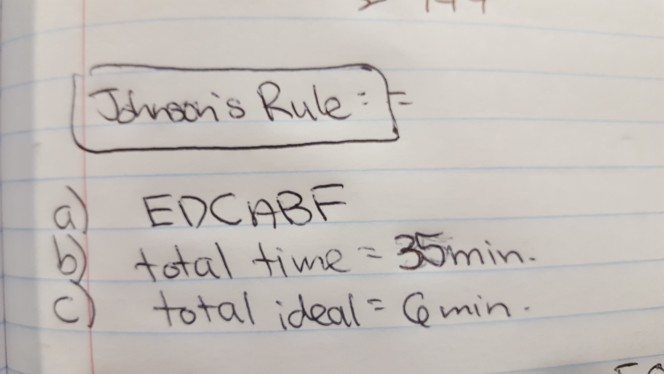 Johnson's Rule :=
a) EDCABF
b) total time = 35min.
c) total ideal = 6min.